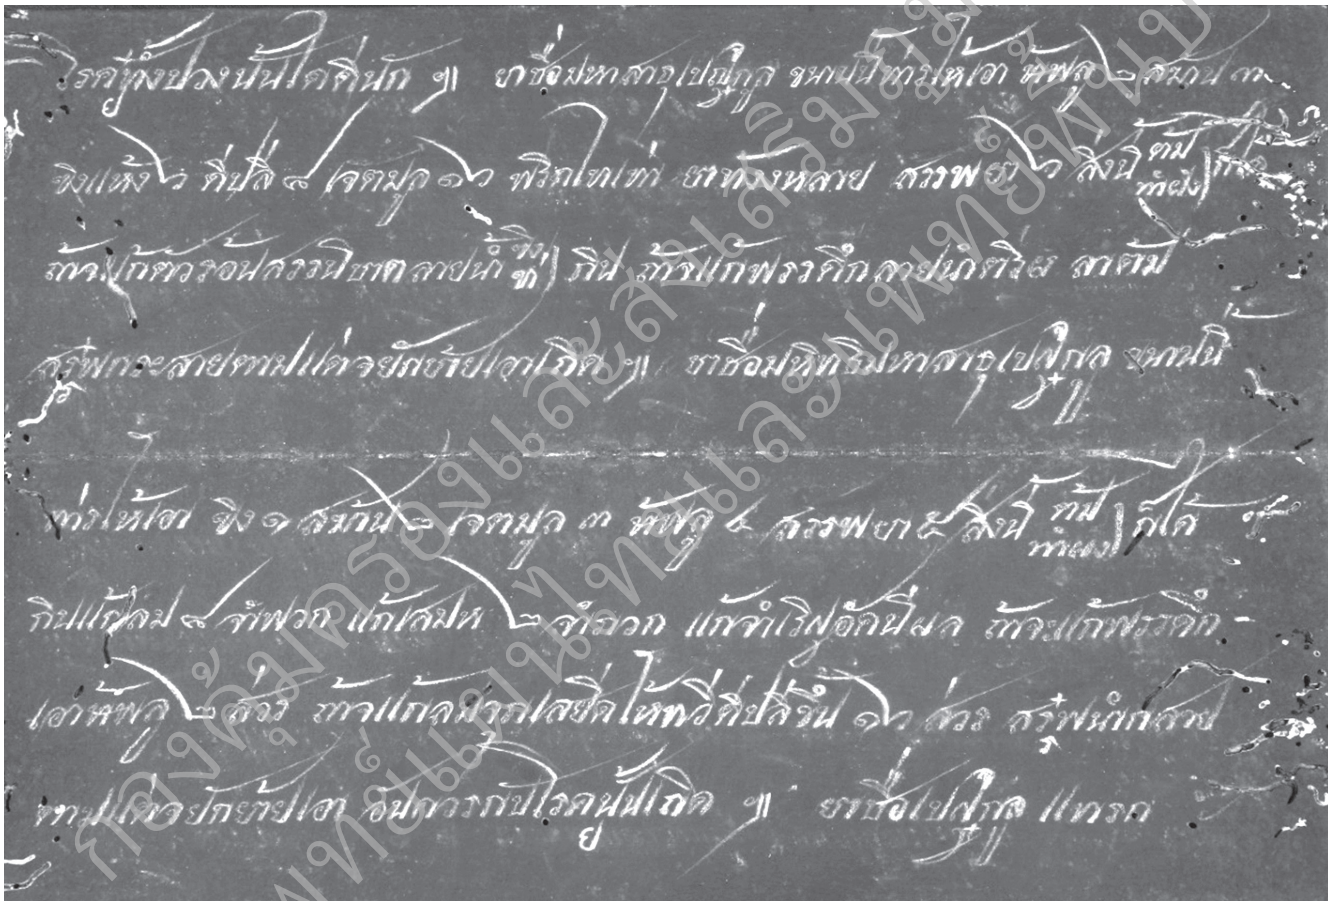 โรคทั้งปวงนั้นไดดีนัก ๚ ยาชื่อมหาสาธุเปญกูล ขนานนี้ท่านให้เอา หัพลู ๒ สมาน ๓
ขิงแห้ง ๖ ดีปลี ๘ เจตมูล ๑๖ พริกไทเท่า ยาทังหลาย สรรพยา ๖ สิ่งนี้ ต้ม ทำผง
ถ้าจะแก้ตัวรอนสรรนิบาต ลายน้ำ ขิง ข่า กิน ถ้าจแก้พรรดึกลายน้ำตรีผลาต้ม
สรุ่พกระสายตามแต่จยักย้ายเอาเถิด ๚ ยาชื่อมหิทธิมหาสาธุเปญกูล ขนานนี้
ท่านให้เอา ขิง ๑ สมาน ๒ เจตมูล ๓ หัพลู ๔ สรรพยา ๔ สิ่งนี้ ต้ม ทำผง ก็ได้
กินแก้ลม ๘ จำพวก แก้เสมห ๒ จำพวก แก้จำเริญอัคนีผล ถ้าจะแก้พรรดึก
เอาหัพลู ๒ ส่วร ถ้าแก้ลมจุกเสียดให้ทวีดีปลีขึ้น ๑๖ ส่วร สรุ่พน้ำกสาย
ตามแต่จยักย้ายเอา อันควรกับโรคนั้นเถิด ๚ ยาชื่อเปญกูล แทรก
กองคุ้มครองและส่งเสริมภูมิปัญญาการแพทย์แผนไทยและแพทย์พื้นบ้านไทย